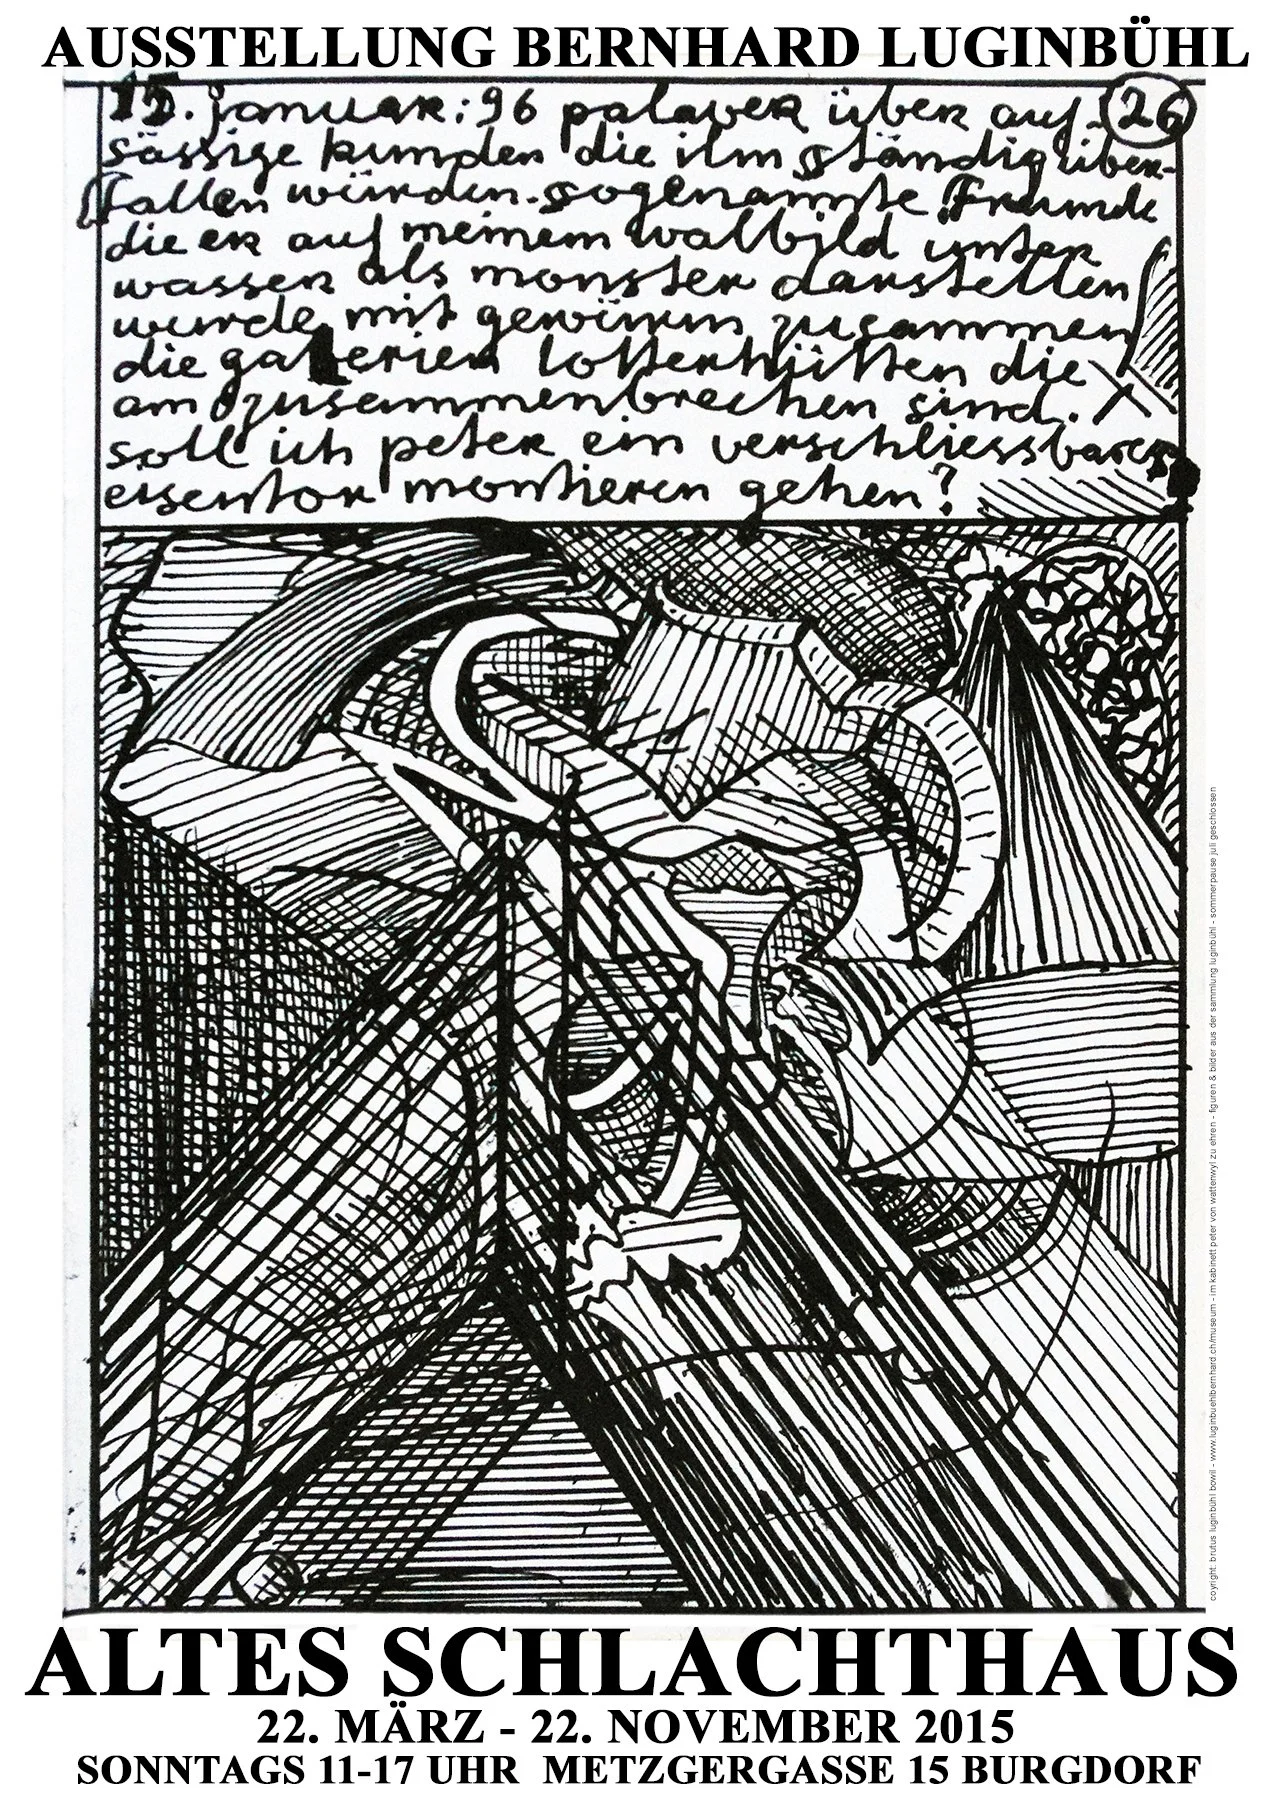 AUSSTELLUNG BERNHARD LUGINBÜHL
15. januar: 96 palaver über auf- 26
sässige kunden die ihm ständig über-
fallen würden. sogenannte freunde
die er auf meinem walbild unter
wasser als monster darstellen
würde, mit gewürm zusammen
die galerien lotterhütten die
am zusammenbrechen sind.
soll ich peter ein verschliessbares
eisentor montieren gehen?
coyright: brutus luginbühl bowil - www.luginbuehlbernhard.ch/museum - im kabinett peter von wattenwyl zu ehren - figuren & bilder aus der sammlung luginbühl - sommerpause juli geschlossen
ALTES SCHLACHTHAUS
22. MÄRZ - 22. NOVEMBER 2015
SONNTAGS 11-17 UHR METZGERGASSE 15 BURGDORF